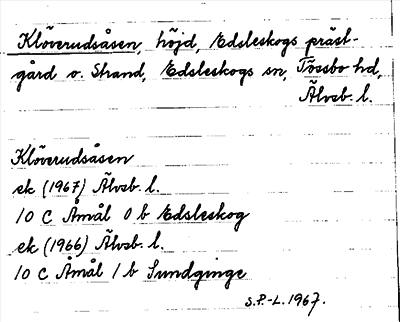 Klöverudsåsen, höjd, Edsleskogs präst-
gård o. Strand, Edsleskogs sn, Tössbo hd,
Älvsb. l.
Klöverudsåsen
ek (1967) Älvsb. l.
10 C Åmål 0 b Edsleskog
ek (1966) Älvsb. l.
10 C Åmål 1 b Sundginge
S.P.-L. 1967.